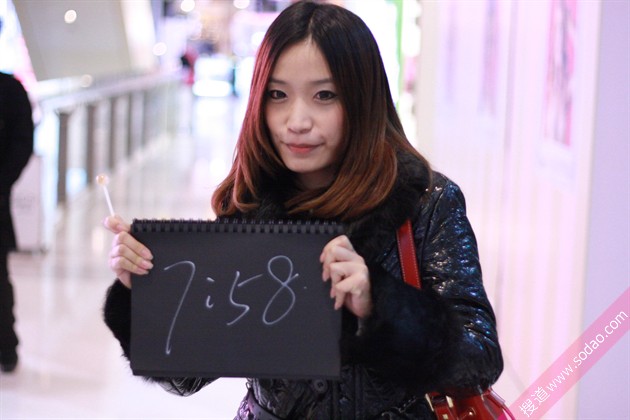 7:58
搜道www.sodao.com